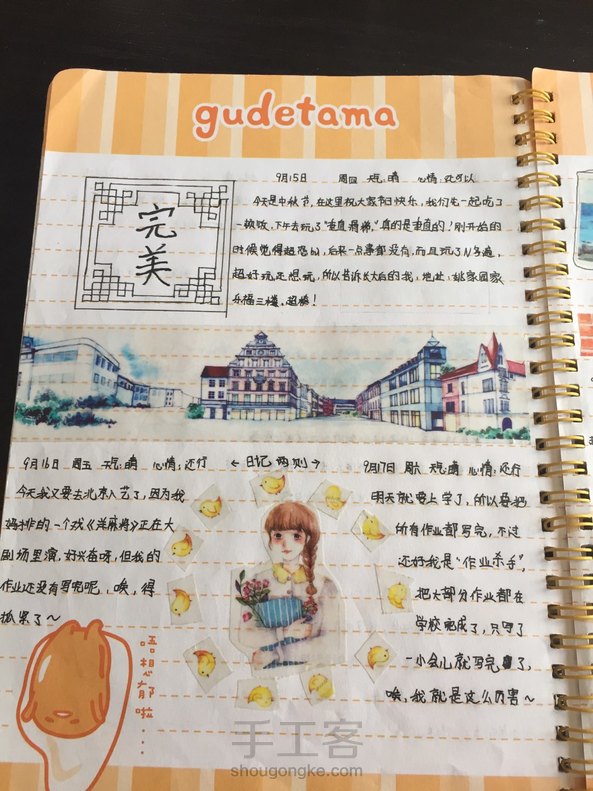 gudetama
完
美
9月15日 周四 天气:晴 心情:还可以
今天是中秋节,在这里祝大家节日快乐,我们先一起吃了
一顿饭,下午去玩了"垂直滑梯",真的是垂直的!刚开始的
时候觉得超恐怖,后来一点事都没有,而且玩了N多遍,
超好玩还想玩,所以告诉长大后的我,地址:姚家园家
乐福三楼,超棒!
9月16日 周五 天气:晴 心情:还行
今天我又要去北京人艺了,因为我
妈排的一个戏《洋麻将》正在大
剧场里演,好兴奋呀,但我的
作业还没有写完呢,唉,得
抓紧了~
← 日记两则 →
9月17日 周六 天气:晴 心情:还行
明天就要上学了,所以要把
所有作业都写完,不过
还好我是"作业杀手",
把大部分作业都在
学校完成了,只写了
一小会儿就写完了,
唉,我就是这么厉害~
唔想郁啦....
手工客
shougongke.com